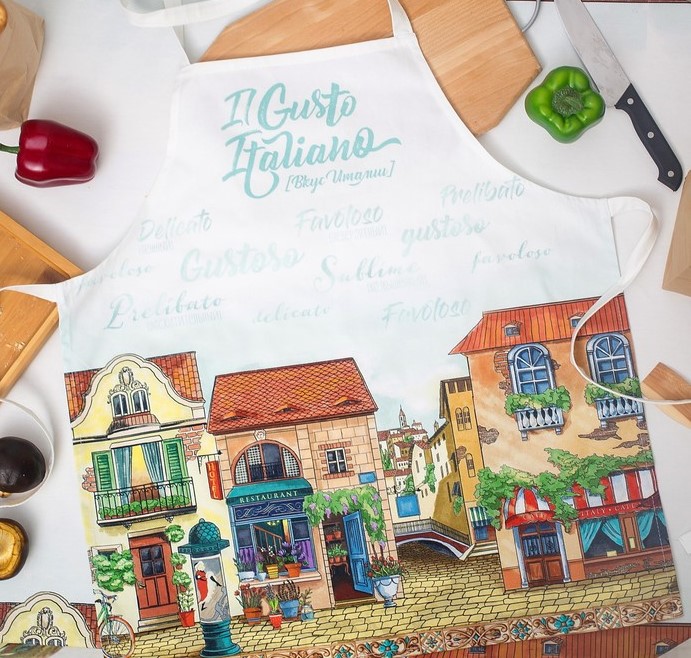 Il Gusto
Italiano
[Вкус Италии]
Delicato
Favoloso
Prelibato
favoloso
Gustoso
Sublime
gustoso
favoloso
Prelibato
delicato
Favoloso
RESTAURANT
ITALY CAFE